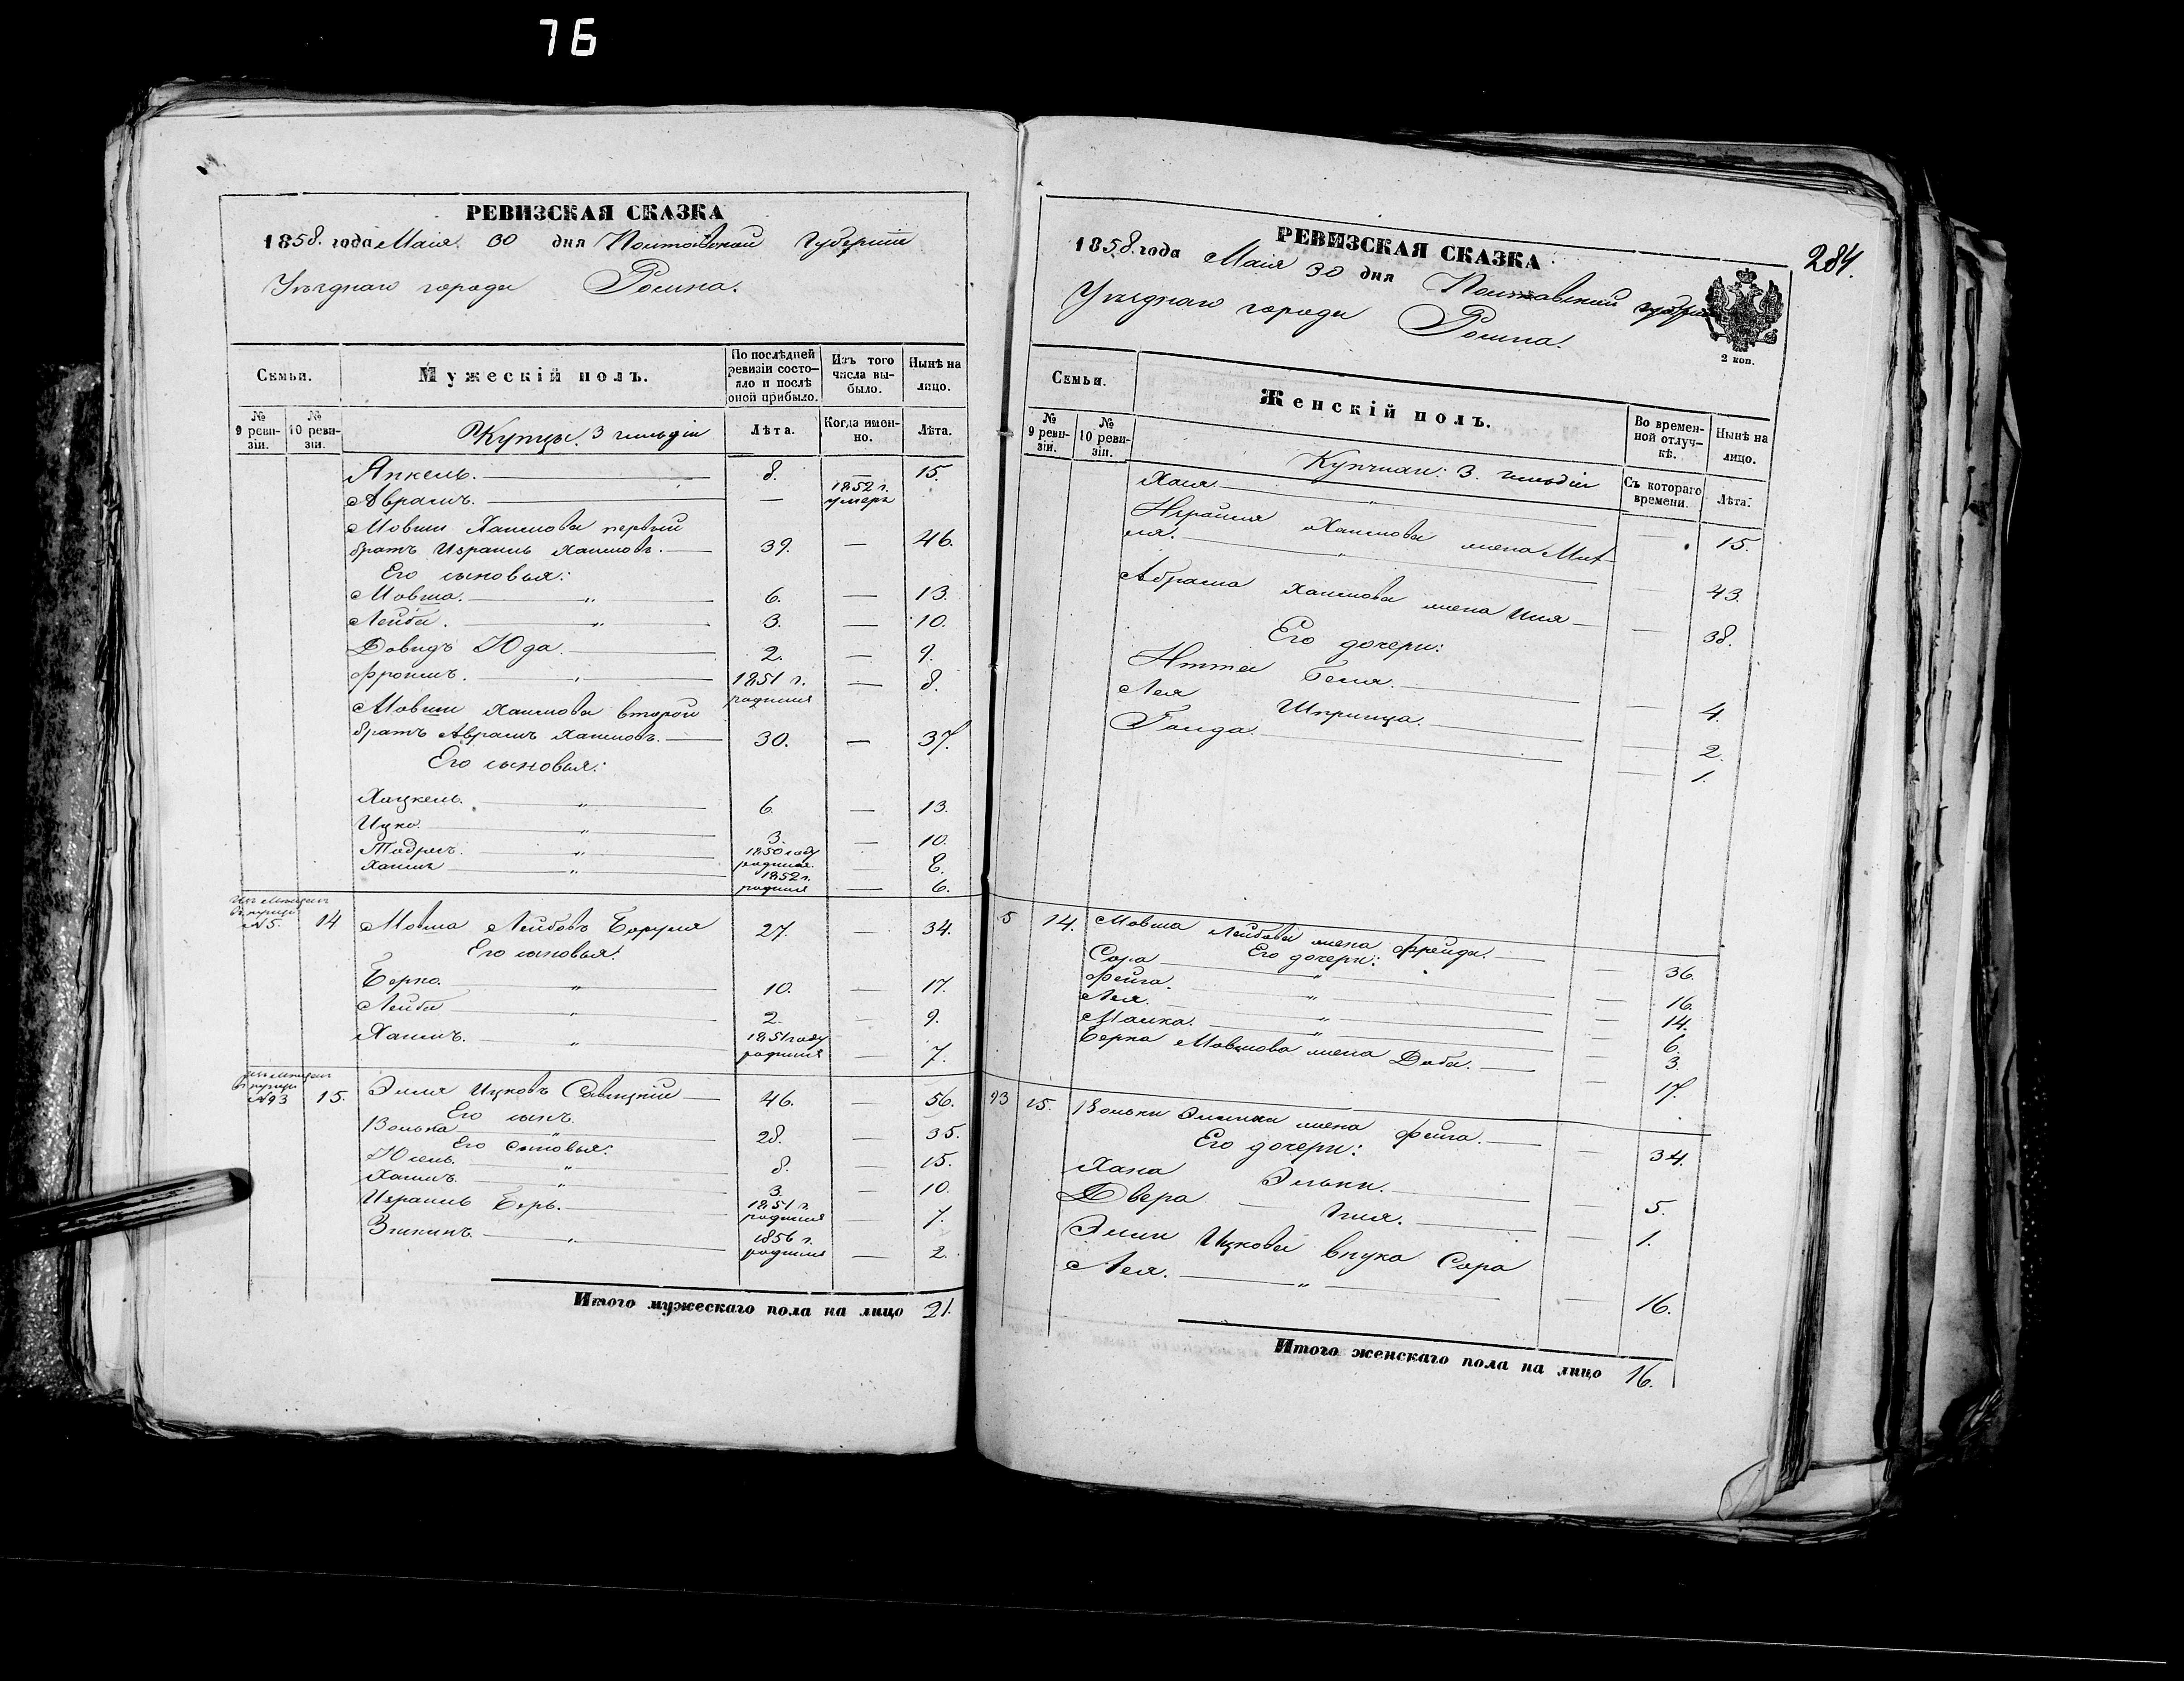 76
РЕВИЗСКАЯ СКАЗКА
1858. года Маія 30 дня Полтавской Губерніи
Уѣзднаго города Ромна.
Семьи. Мужескій полъ. По послѣдней ревизіи состояло и послѣ оной прибыло. Изъ того числа выбыло. Нынѣ на лицо.
№ 9 ревизіи. № 10 ревизіи. Купцы. 3 гильдіи Лѣта. Когда именно. Лѣта.
Янкель. 8. — 15.
Абрамъ. — 1852 г. умеръ
Мовши Хаимова первый
братъ Израиль Хаимовъ. 39. — 46.
Его сыновья:
Мовша. „ 6. — 13.
Лейба. „ 3. — 10.
Довидъ Юда. 2. — 9.
Фроимъ. „ 1851 г. родился — 8.
Мовши Хаимова второй
братъ Абрамъ Хаимовъ. 30. — 37.
Его сыновья:
Хацкель. „ 6. — 13.
Ицко. „ 3. — 10.
Тодресъ. „ 1850 году родился. — 8.
Хаимъ „ 1852 г. родился — 6.
№5. 14 Мовша Лейбовъ 27. — 34.
Его сыновья:
Берко. „ 10. — 17.
Лейба „ 2. — 9.
Хаимъ. „ 1851 году родился — 7.
№93 15. Элья Ицковъ Савицкій 46. — 56.
Его сынъ.
Волька „ 28. — 35.
Его сыновья:
„ 8. — 15.
Хаимъ. „ 3. — 10.
Израиль Беръ. 1851 г. родился — 7.
„ 1856 г. родился — 2.
Итого мужескаго пола на лицо 21.
284.
РЕВИЗСКАЯ СКАЗКА
1858. года Маія 30 дня Полтавской губерніи
Уѣзднаго города Ромна.
2 коп.
Семьи. Женскій полъ. Во временной отлучкѣ. Нынѣ на лицо.
№ 9 ревизіи. № 10 ревизіи. 3. гильдіи Съ котораго времени. Лѣта.
Хая. „ — 15.
Израиля Хаимова жена
„ — 43.
Абрама Хаимова жена — 38.
Его дочери:
Итта Бейля. — 4.
Лея Шпринца. — 2.
Голда. — 1.
5 14. Мовша Лейбова жена Фрейда. — 36.
Его дочери:
Сора „ — 16.
Фейга. „ — 14.
Лея. „ — 6.
Малка. „ — 3.
Берка Мовшова жена Доба. — 17.
93 15. Вольки жена Фейга. — 34.
Его дочери:
Хана Элька. — 5.
Двера — 1.
Эльи Ицкова внука Сора
Лея. „ — 16.
Итого женскаго пола на лицо 16.